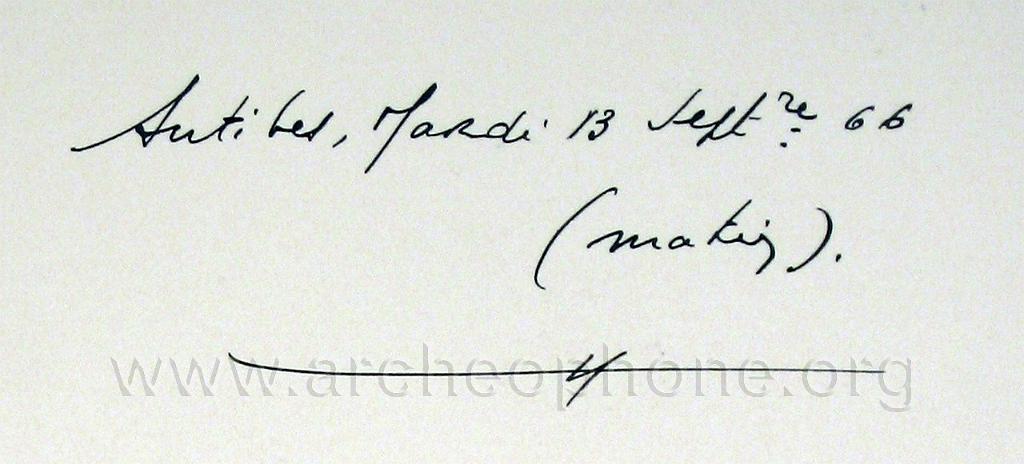 Antibes, Mardi 13 Sept^re 66
(matin).
www.archeophone.org